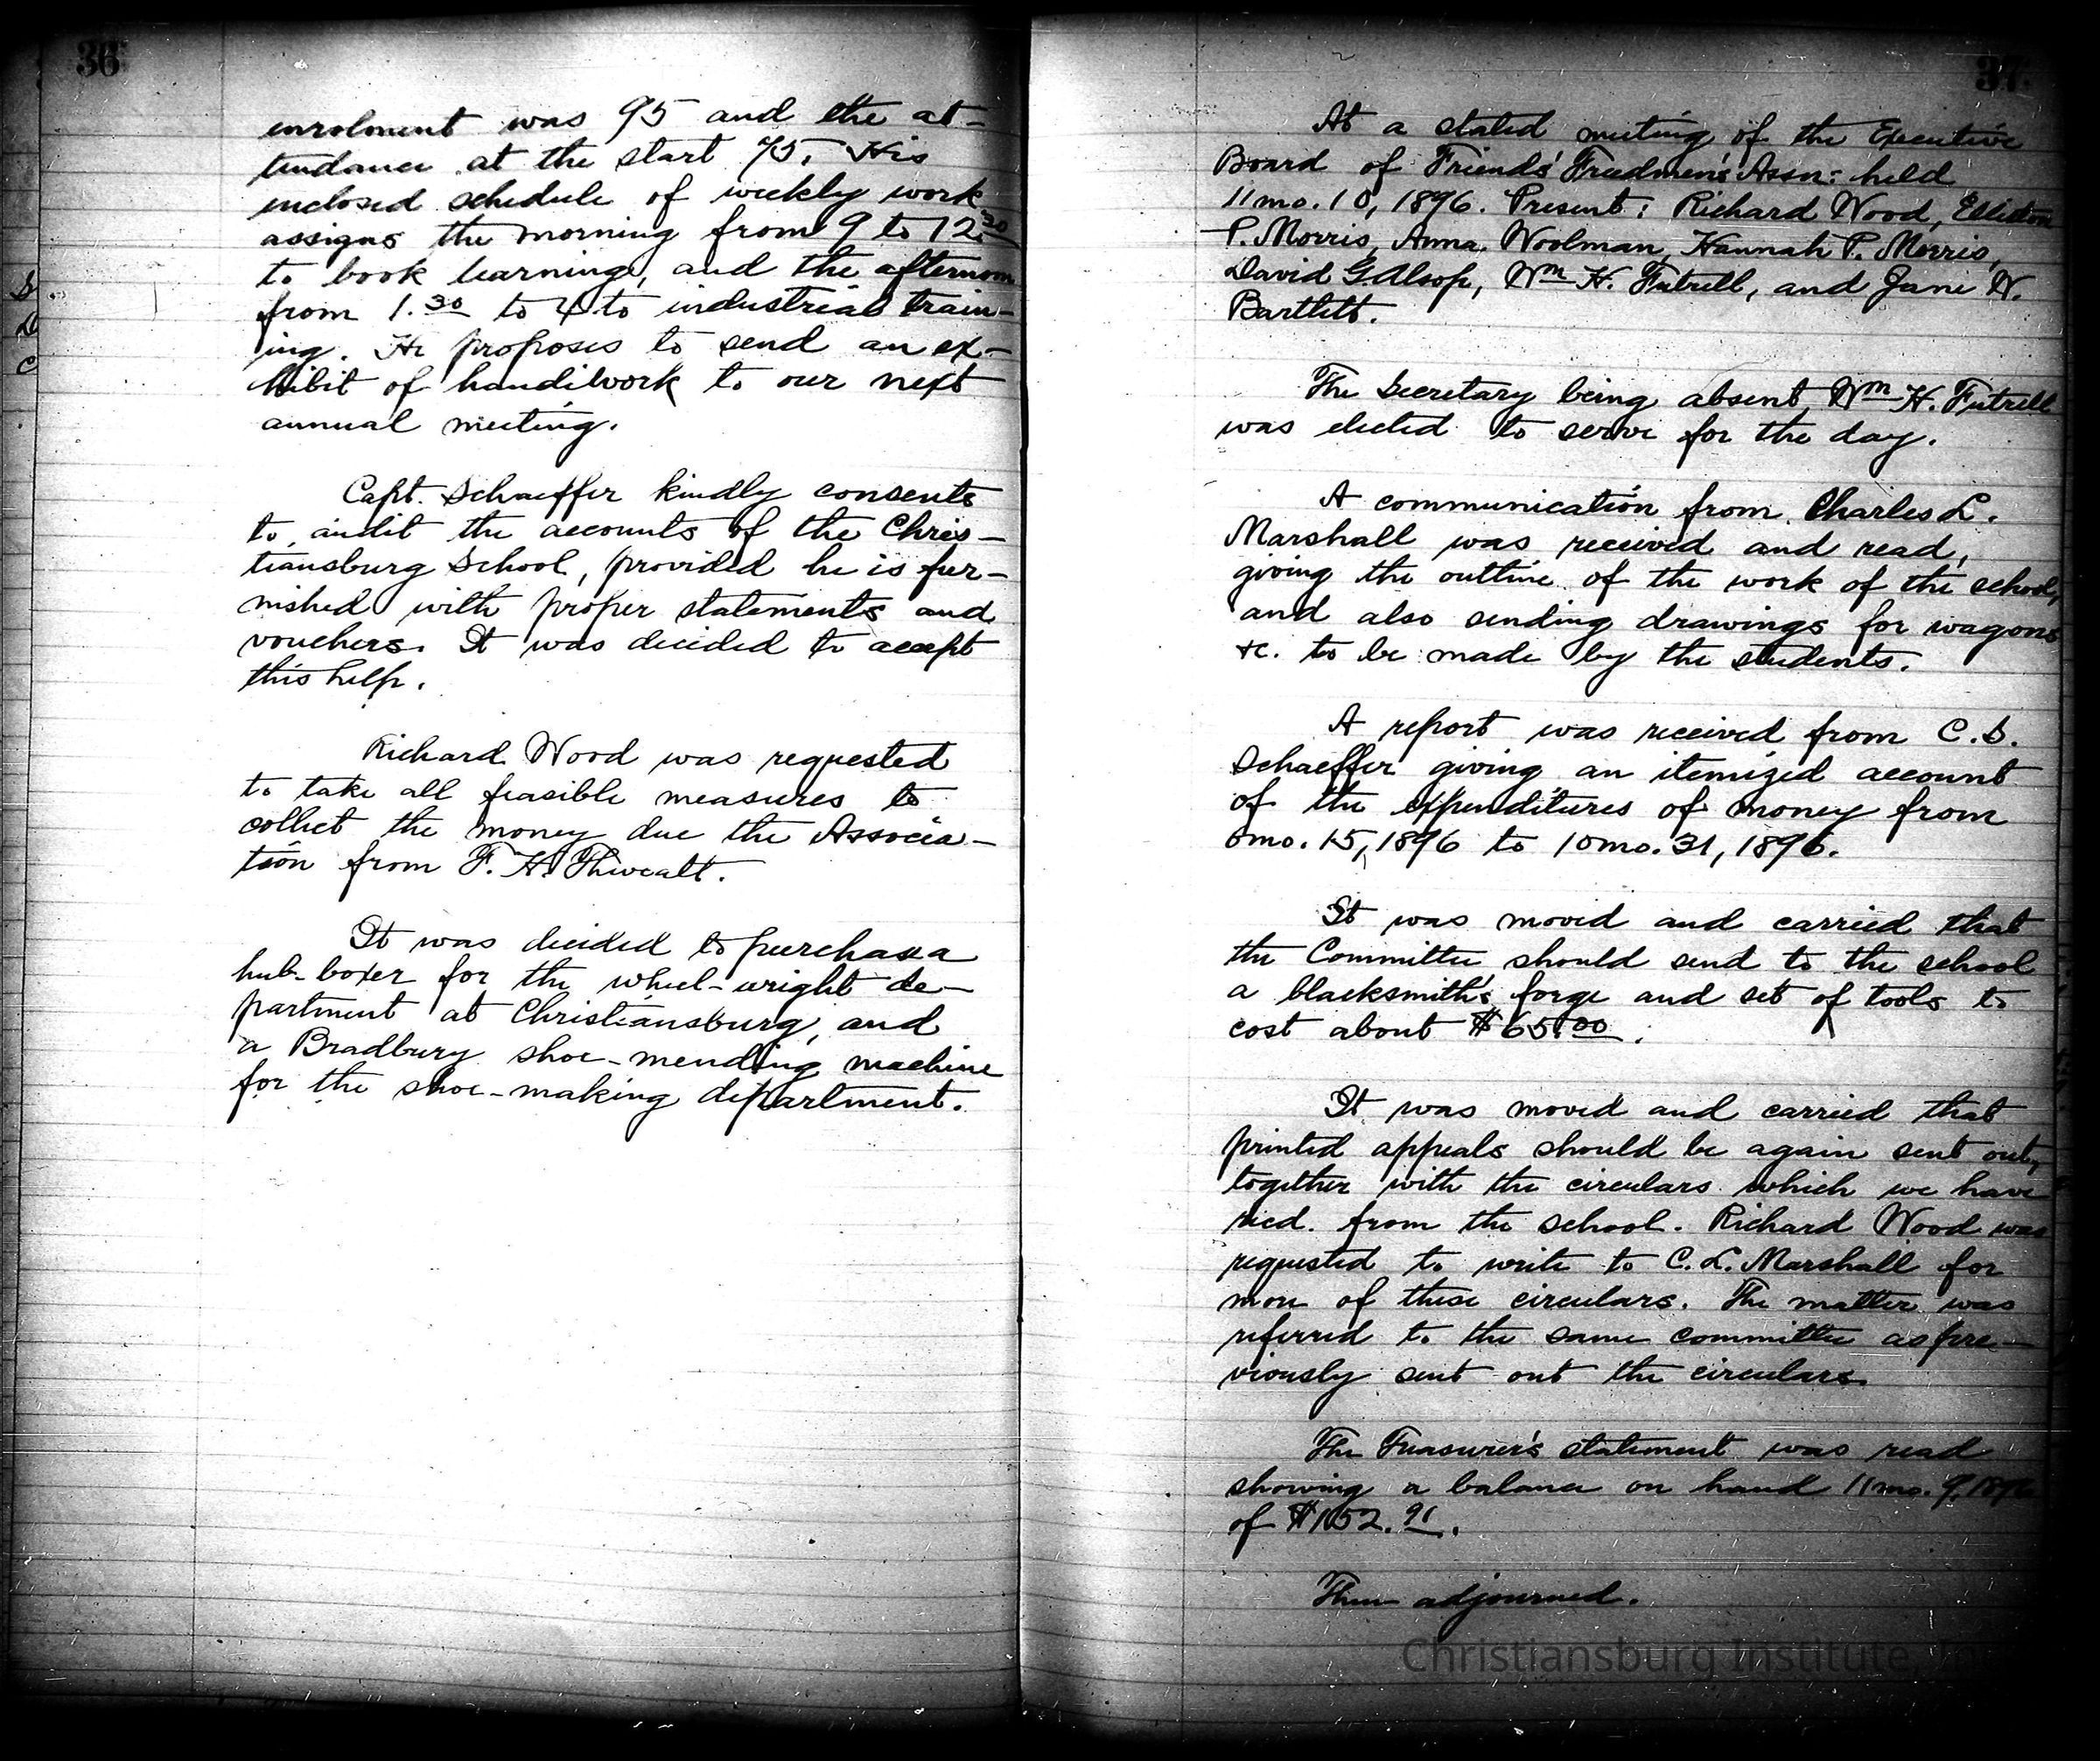 36
enrolment was 95 and the at-
tendance at the start 75. His
enclosed schedule of weekly work
assigns the morning from 9 to 12.30
to book learning, and the afternoon
from 1.30 to 4 to industrial train-
ing. He proposes to send an ex-
hibit of handiwork to our next
annual meeting.
Capt. Schaeffer kindly consents
to audit the accounts of the Chris-
tiansburg School, provided he is fur-
nished with proper statements and
vouchers. It was decided to accept
this help.
Richard Wood was requested
to take all feasible measures to
collect the money due the Associa-
tion from F. H. Thweatt.
It was decided to purchase a
hub-boxer for the wheel-wright de-
partment at Christiansburg, and
a Bradbury shoe-mending machine
for the shoe-making department.
37
At a stated meeting of the Executive
Board of Friends' Freedmen's Assn: held
11mo. 10, 1896. Present: Richard Wood, Elliston
P. Morris, Anna Woolman, Hannah P. Morris,
David G. Alsop, Wm H. Futrell, and Jane W.
Bartlett.
The Secretary being absent Wm H. Futrell
was elected to serve for the day.
A communication from Charles L.
Marshall was received and read,
giving the outline of the work of the school,
and also sending drawings for wagons
&c. to be made by the students.
A report was received from C.S.
Schaeffer giving an itemized account
of the expenditures of money from
mo. 15, 1896 to 10mo. 31, 1896.
It was moved and carried that
the Committee should send to the school
a blacksmith's forge and set of tools to
cost about $65.00.
It was moved and carried that
printed appeals should be again sent out,
together with the circulars which we have
recd. from the school. Richard Wood was
requested to write to C. L. Marshall for
more of these circulars. The matter was
referred to the same committee as pre-
viously sent out the circulars.
The Treasurer's statement was read
showing a balance on hand 11mo. 9, 1896
of $1152.91.
Then adjourned.
Christiansburg Institute, Inc